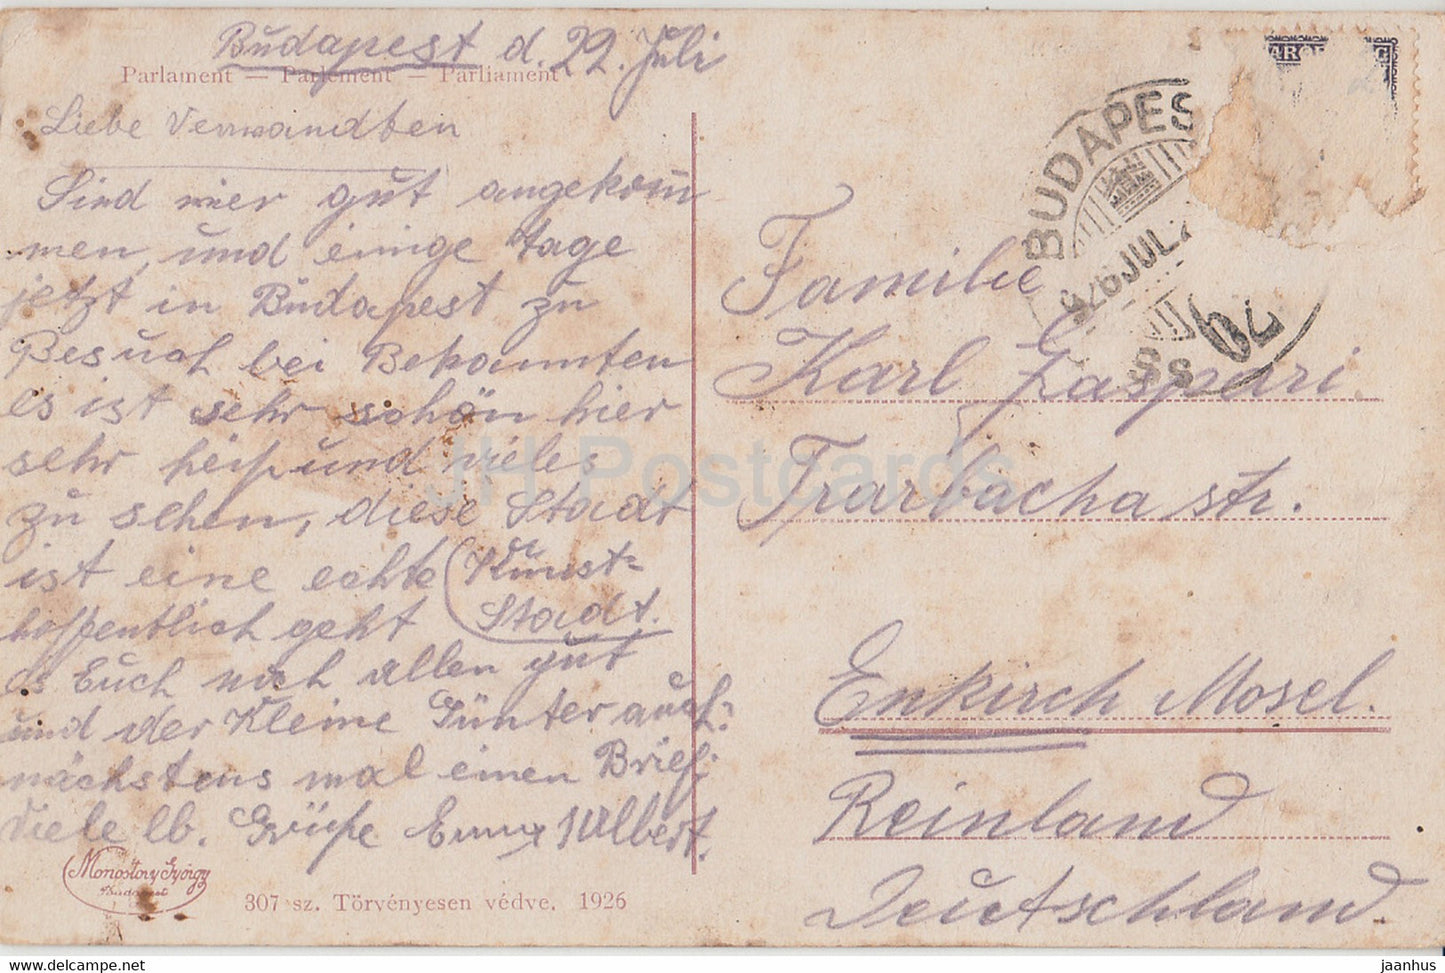 Budapest d. 22. Juli
Parlament — Parlement — Parliament
Liebe Verwandten
Sind wier gut angekom
men, und einige tage
jetzt in Budapest zu
Besuch bei Bekannten
es ist sehr schön hier
sehr heiß und vieles
zu sehen, diese Stadt
ist eine echte Kunst-
Stadt.
hoffentlich geht
es Euch noch allen gut
und der Kleine Günter auch:
nächstens mal einen Brief:
Viele lb. Grüße Albert.
Monostory György
Budapest
307 sz. Törvényesen védve. 1926
BUDAPES
926 JUL 2
62
Familie
Karl Gaspari.
Trarbacha str.
Enkirch Mosel.
Reinland
Deutschland.
JH Postcards
www.delcampe.net
jaanhus